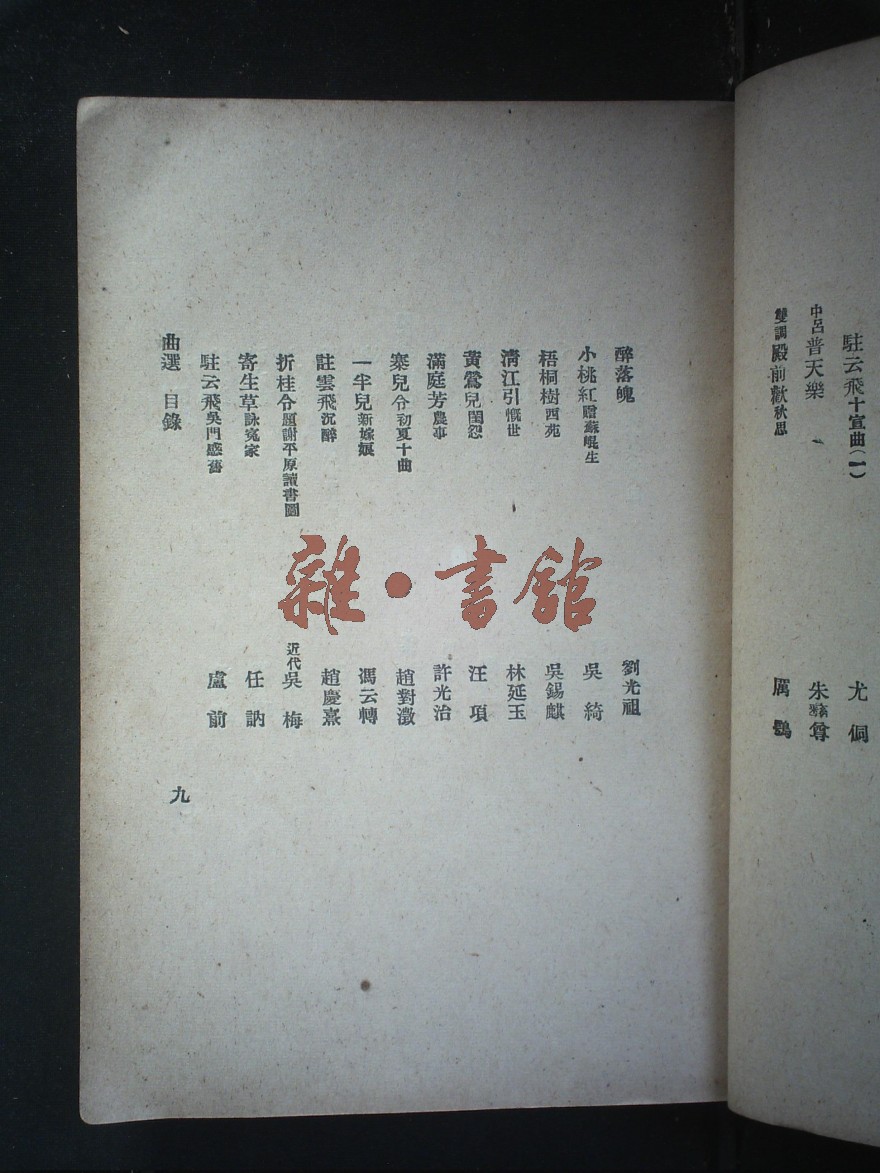 駐云飛十宣曲(一) 尤侗
中呂普天樂 朱彝尊
雙調殿前歡秋思 厲鶚
醉落魄 劉光祖
小桃紅贈蘇崐生 吳綺
梧桐樹西苑 吳錫麒
清江引慨世 林延玉
黄鶯兒閨怨 汪項
滿庭芳農事 許光治
寨兒令初夏十曲 趙對澂
一半兒新嫁娘 馮云轉
註雲飛沉醉 趙慶熹
折桂令題謝平原讀書圖 近代吳梅
寄生草詠冤家 任訥
駐云飛吳門感舊 盧前
曲選 目錄 九
雜·書館